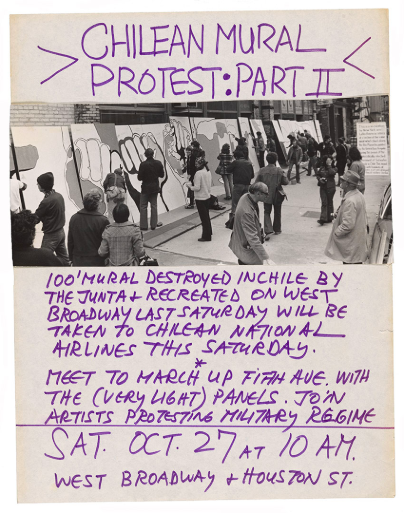 CHILEAN MURAL
PROTEST: PART II
100' MURAL DESTROYED IN CHILE BY
THE JUNTA & RECREATED ON WEST
BROADWAY LAST SATURDAY WILL BE
TAKEN TO CHILEAN NATIONAL
AIRLINES THIS SATURDAY.
*
MEET TO MARCH UP FIFTH AVE. WITH
THE (VERY LIGHT) PANELS. JOIN
ARTISTS PROTESTING MILITARY REGIME
SAT. OCT. 27 AT 10 AM.
WEST BROADWAY & HOUSTON ST.